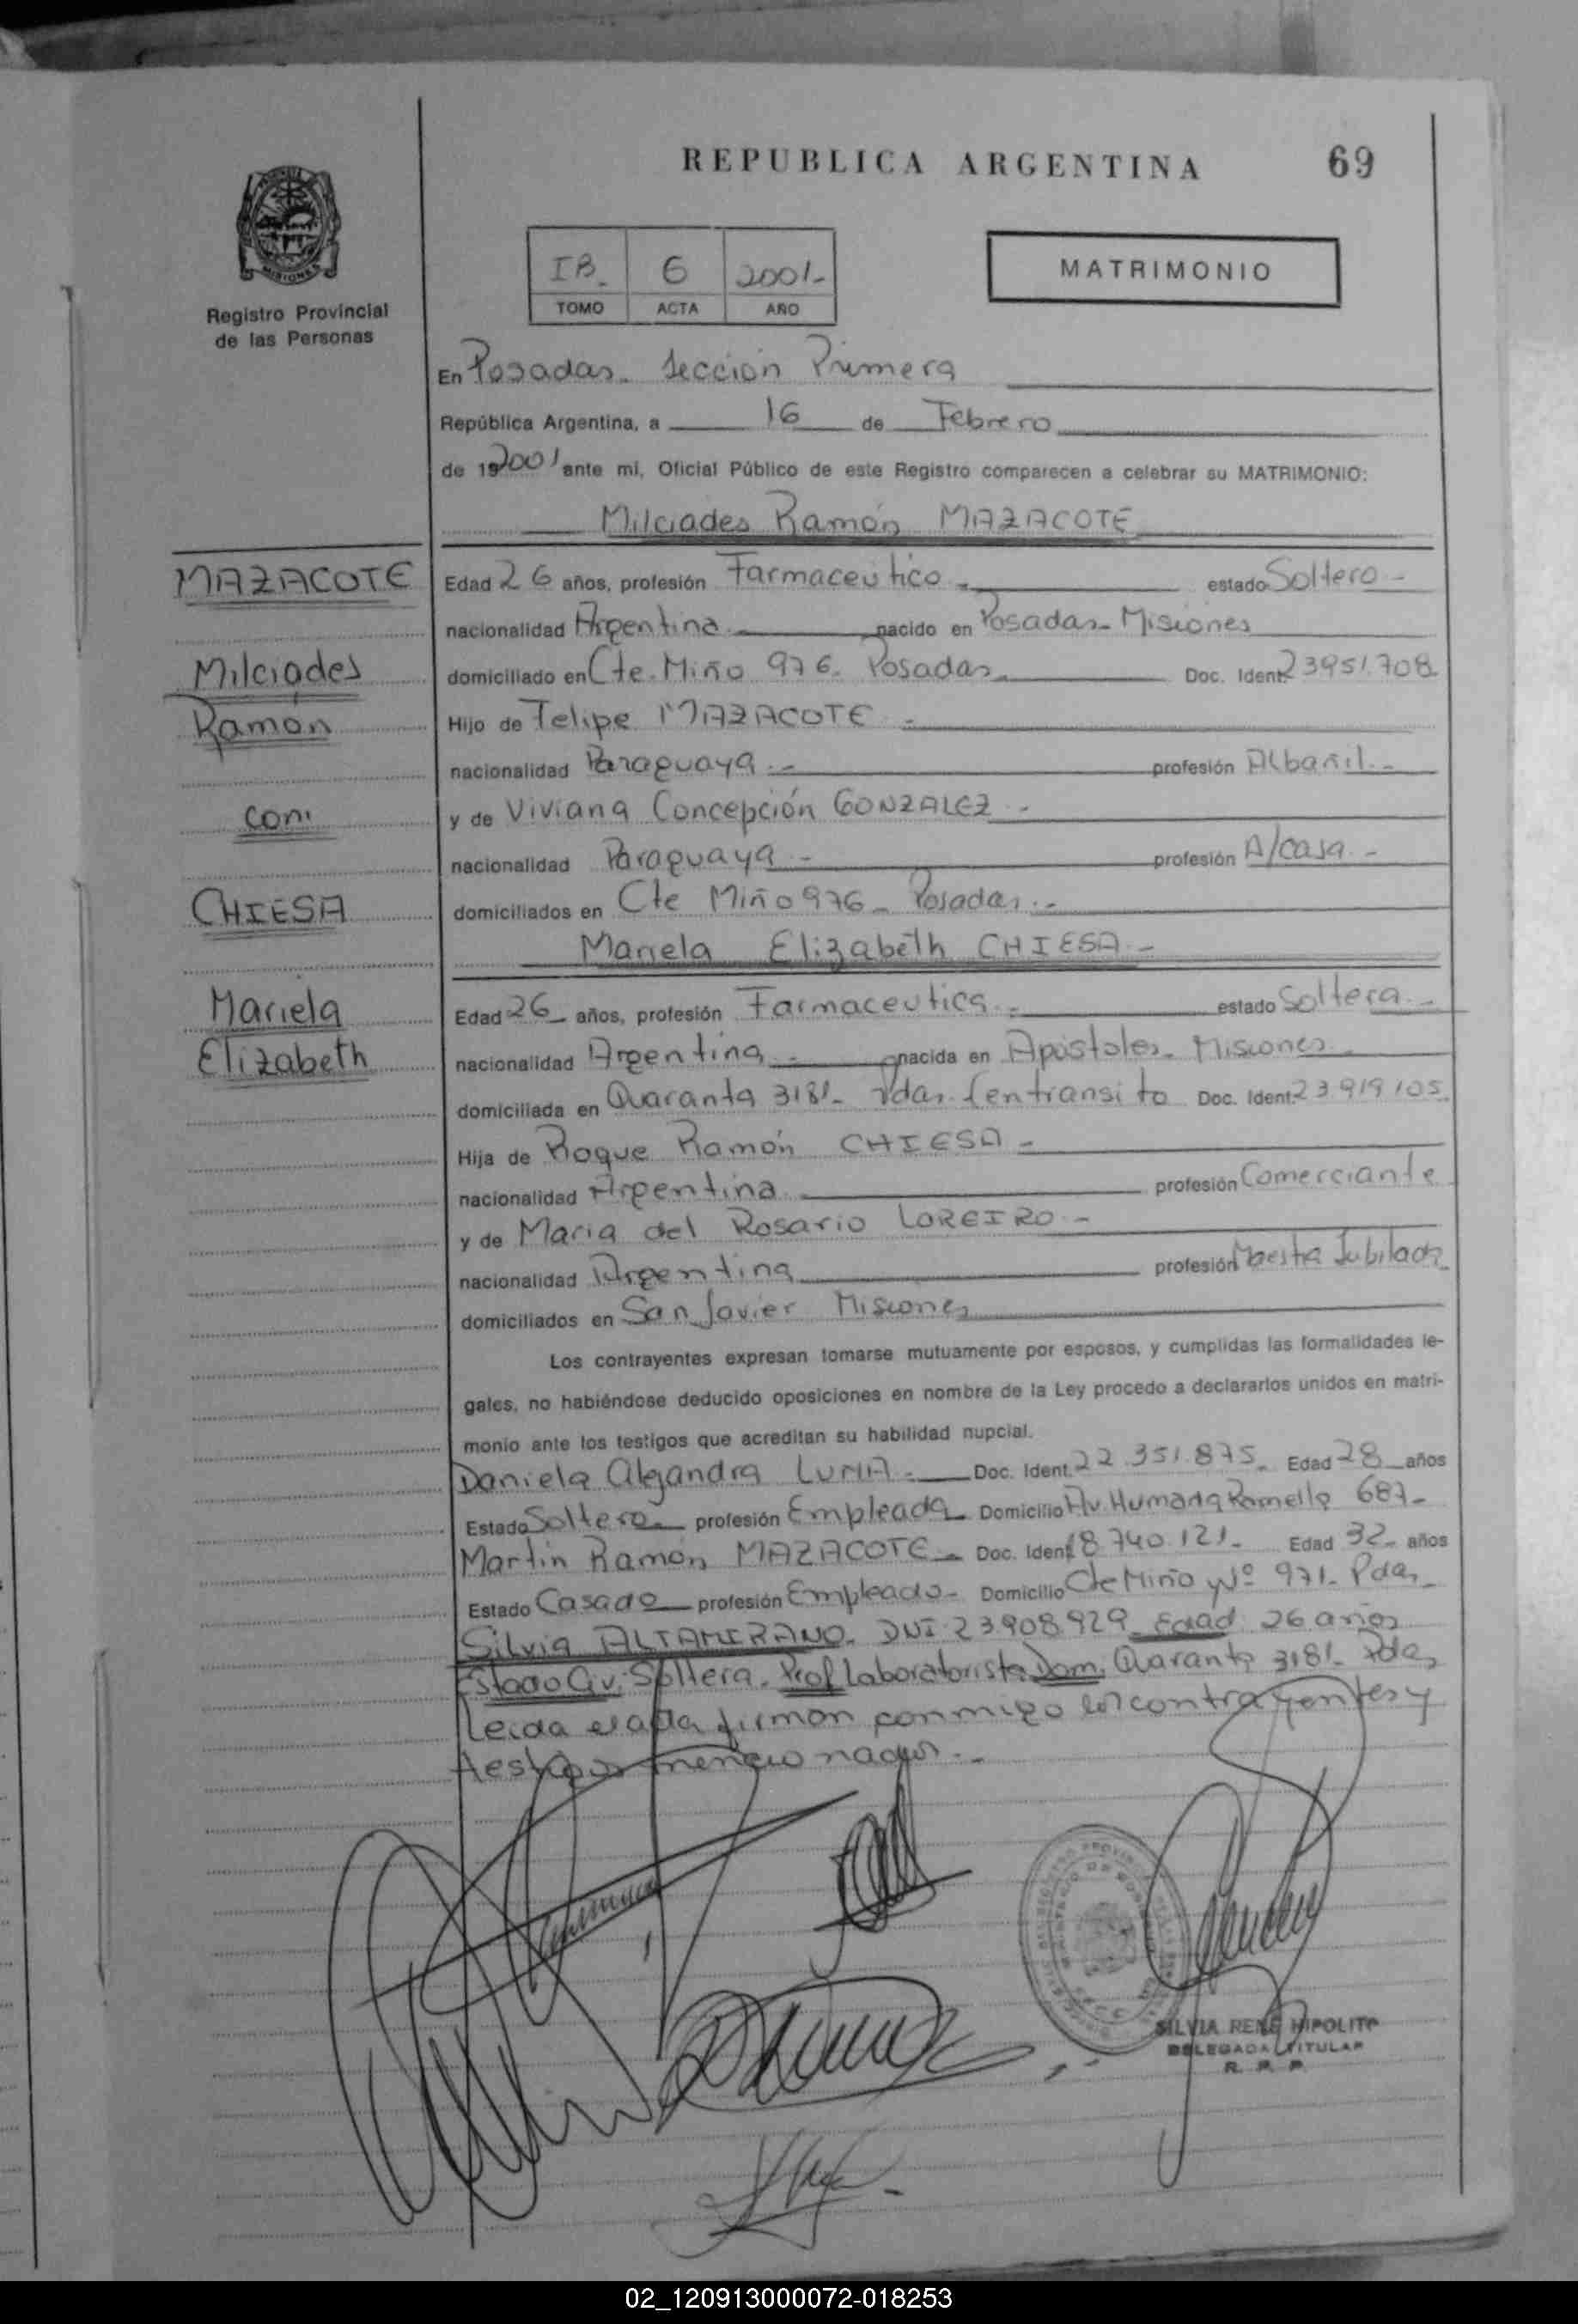 REPUBLICA ARGENTINA
69
MISIONES
Registro Provincial
de las Personas
IB.
6
2001-
TOMO
ACTA
AÑO
MATRIMONIO
En Posadas. Sección Primera
República Argentina, a 16 de Febrero
de 192001 ante mi, Oficial Público de este Registro comparecen a celebrar su MATRIMONIO:
Milciades Ramón MAZACOTE
MAZACOTE
Milciades
Ramón
con
CHIESA
Mariela
Elizabeth
Edad 26 años, profesión Farmaceutico.- estado Soltero-
nacionalidad Argentina nacido en Posadas- Misiones
domiciliado en Cte. Miño 976- Posadas. Doc. Ident. 23951.708.
Hijo de Felipe MAZACOTE.-
nacionalidad Paraguaya.- profesión Albañil.-
y de Viviana Concepción GONZALEZ.-
nacionalidad Paraguaya.- profesión A/casa.-
domiciliados en Cte Miño 976- Posadas.-
Mariela Elizabeth CHIESA.-
Edad 26 años, profesión Farmaceutica.- estado Soltera.-
nacionalidad Argentina.- nacida en Apóstoles. Misiones
domiciliada en Quaranta 3181- Pdas. (en transito Doc. Ident. 23.919105.
Hija de Roque Ramón CHIESA-
nacionalidad Argentina profesión Comerciante
y de Maria del Rosario LOREIRO.-
nacionalidad Argentina profesión Maestra Jubilada
domiciliados en San Javier Misiones
Los contrayentes expresan tomarse mutuamente por esposos, y cumplidas las formalidades le-
gales, no habiéndose deducido oposiciones en nombre de la Ley procedo a declararlos unidos en matri-
monio ante los testigos que acreditan su habilidad nupcial.
Daniela Alejandra LUNA.- Doc. Ident. 22.351.875. Edad 28 años
Estado Soltera. profesión Empleada. Domicilio Av. 687-
Martin Ramón MAZACOTE- Doc. Ident. 18.740.121. Edad 32- años
Estado Casado profesión Empleado- Domicilio Cte Miño Nº 971- Pdas-
Silvia ALTAMIRANO. DNI 23908.929- Edad 26 años
Estado Civ. Soltera. Prof Laboratorista Dom. Quaranta 3181- Pdas
Leida el acta firman conmigo los contrayentes y
testigos mencionados.-
SILVIA RENE HIPOLITO
DELEGADA TITULAR
R. P. P.
02_120913000072-018253